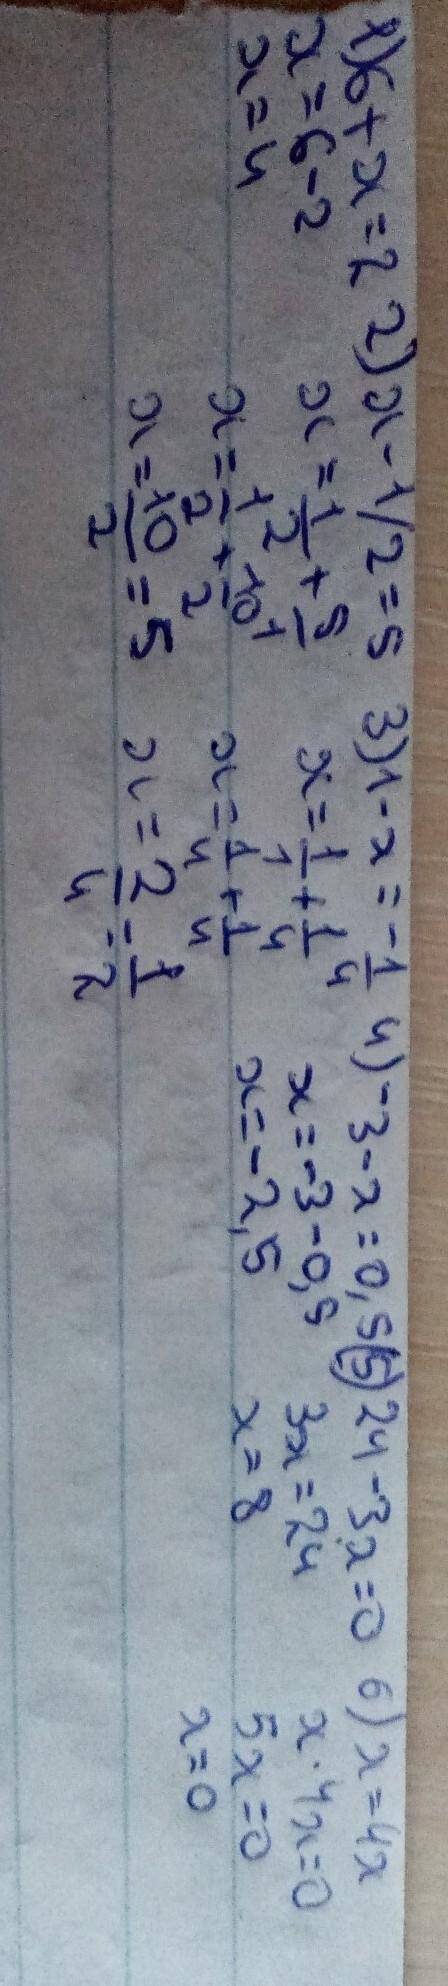 1) 6 + x = 2
x = 6 - 2
x = 4
2) x - 1/2 = 5
x = 1/2 + 5/1
x = 1/2 + 10/2
x = 10/2 = 5
3) 1 - x = -1/4
x = 1/1 + 1/4
x = 1/4 + 1/4
x = 2/4 = 1/2
4) -3 - x = 0,5
x = -3 - 0,5
x = -2,5
5) 24 - 3x = 0
3x = 24
x = 8
6) x = 4x
x · 4x = 0
5x = 0
x = 0